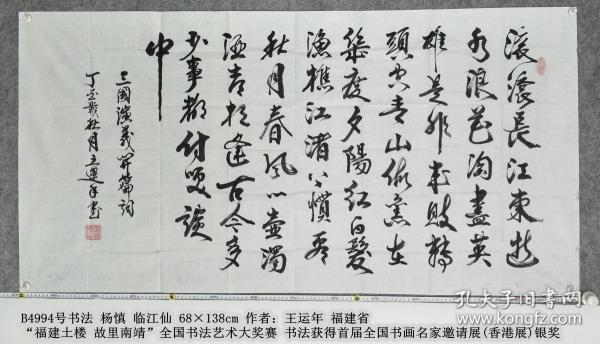 滚滚長江東逝
水浪花淘盡英
雄是非成敗轉
頭空青山依舊在
幾度夕陽紅白髮
漁樵江渚上慣看
秋月春風一壺濁
酒喜相逢古今多
少事都付笑談
中
三國演義开篇詞
丁亥歲秋月王運年書
孔夫子旧书网
B4994号书法 杨慎 临江仙 68×138cm 作者：王运年 福建省
“福建土楼 故里南靖”全国书法艺术大奖赛 书法获得首届全国书画名家邀请展(香港展)银奖